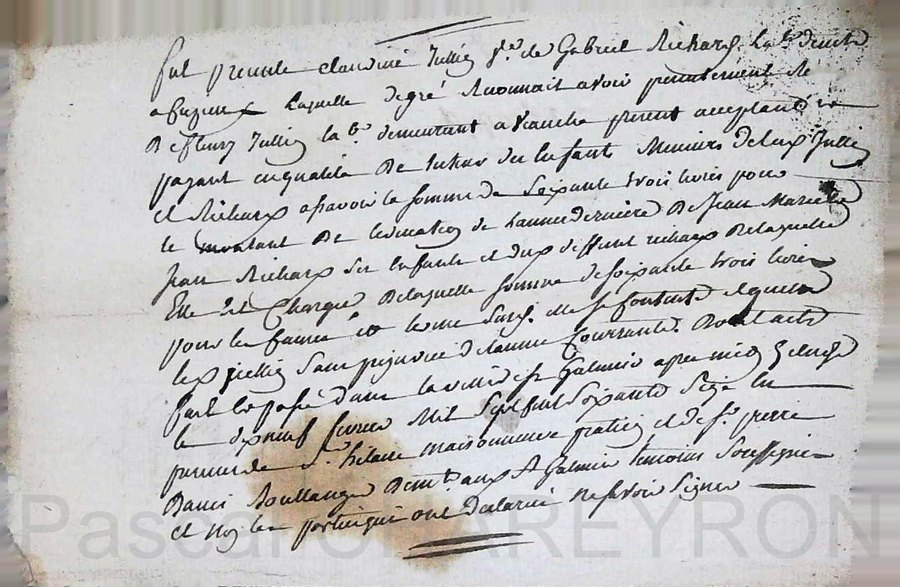 fut presente claudine Jullien f.e de Gabriel Richard lab.r demt
a laquelle degré Reconnait avoir presentement Re
De fleury Jullien lab.r demeurant a presant acceptant
payant enqualité De tuteur des Enfants Mineurs de Jullien
et Richard assavoir la somme de Soixante trois livres pour
le montant De leducation de Lannee derniere De Jean Marie
Jean Richard Ses Enfants et dud deffunt richard De laquelle
Elle Est Chargée De laquelle somme de soixante trois livres
pour les causes Elle se Contente et quitte
led Jullien Sans prejudice de lannee Courrante. Dont acte
fait Et passé dans la ville de St Galmier apres midy
le dixneuf fevrier Mil Sept Cent Soixante Seize En
presence de Sr hilaire maisonneuve praticien et de Sr pierre
Boullanger Demt aux St Galmier temoins Soussignés
et Non les parties qui ont declarées Ne savoir Signer
Pascal CHAREYRON